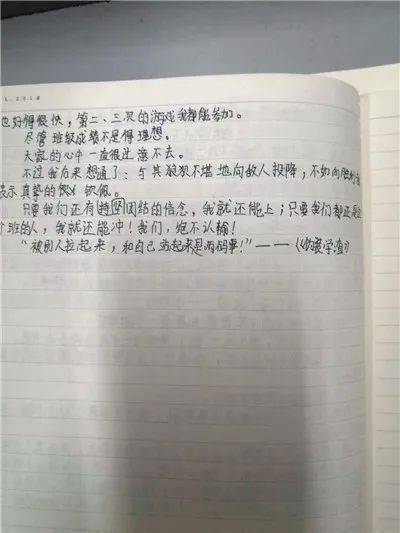 也好得很快，第二、三次的游戏我都能参加。
尽管班级成绩不是得理想。
大家的心中一直很过意不去。
不过我后来想通了：与其狼狈不堪地向敌人投降，不如向胜利者
表示真挚的 钦佩。
只要我们还有 团结的信念，我就还能上；只要我们都还是这
个班的人，我就还能冲！我们，绝不认输！
“被别人拉起来，和自己站起来是两码事！”——《 学渣》